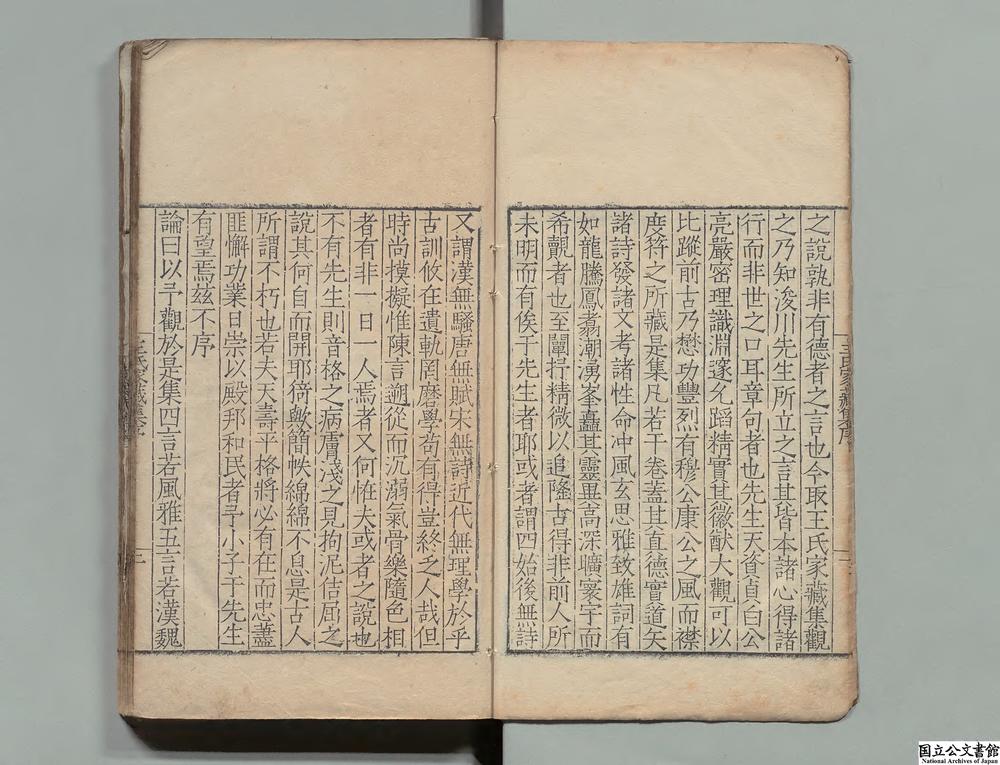 之說孰非有德者之言也今取王氏家藏集觀
之乃知浚川先生所立之言其皆本諸心得諸
行而非世之口耳章句者也先生天資貞白公
亮嚴密理識淵邃允蹈精實其徽猷大觀可以
比蹤前古乃懋功豐烈有穆公康公之風而襟
度符之所藏是集凡若干卷蓋其直德實道矢
諸詩發諸文考諸性命冲風玄思雅致雄詞有
如龍騰鳳翥潮湧峯矗其靈畢高深曠寰宇而
希覯者也至闡抒精微以追隆古得非前人所
未明而有俟于先生者耶或者謂四始後無詩
又謂漢無騷唐無賦宋無詩近代無理學於乎
古訓攸在遺軌罔磨學苟有得豈終之人哉但
時尚摸擬惟陳言遡從而沉溺氣骨樂隨色相
者有非一日一人焉者又何恠夫或者之說也
不有先生則音格之病膚淺之見拘泥佶屈之
說其何自而開耶猗歟簡帙綿綿不息是古人
所謂不朽也若夫天壽平格將必有在而忠藎
匪懈功業日崇以殿邦和民者予小子于先生
有望焉茲不序
論曰以予觀於是集四言若風雅五言若漢魏
王氏家藏集序
国立公文書館
National Archives of Japan